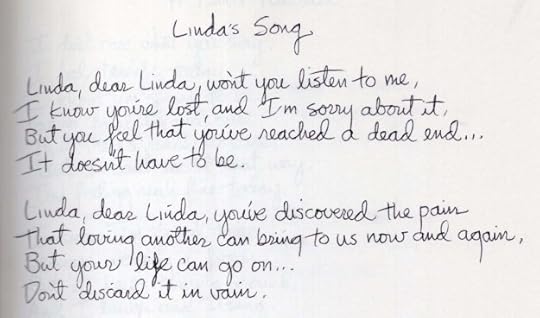 Linda's Song
Linda, dear Linda, won't you listen to me,
I know you're lost, and I'm sorry about it,
But you feel that you've reached a dead end...
It doesn't have to be.
Linda, dear Linda, you've discovered the pain
That loving another can bring to us now and again,
But your life can go on...
Don't discard it in vain.